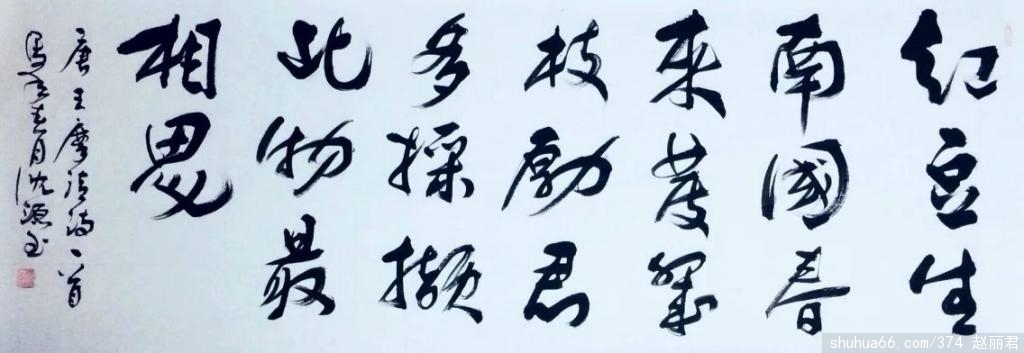 紅豆生
南國春
來發幾
枝勸君
多採擷
此物最
相思
唐王摩詰詩一首
馬年春月沈源书
shuhua66.com/374 赵丽君